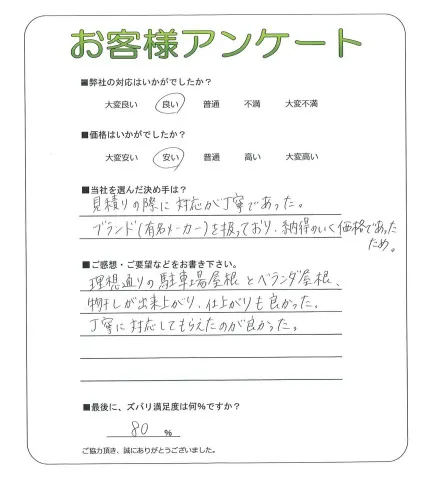 お客様アンケート
■弊社の対応はいかがでしたか?
大変良い 良い 普通 不満 大変不満
■価格はいかがでしたか?
大変安い 安い 普通 高い 大変高い
■当社を選んだ決め手は?
見積りの際に対応が丁寧であった。
ブランド(有名メーカー)を扱っており、納得のいく価格であった
ため。
■ご感想・ご要望などをお書き下さい。
理想通りの駐車場屋根とベランダ屋根、
物干しが出来上がり、仕上がりも良かった。
丁寧に対応してもらえたのが良かった。
■最後に、ズバリ満足度は何%ですか?
80 %
ご協力頂き、誠にありがとうございました。